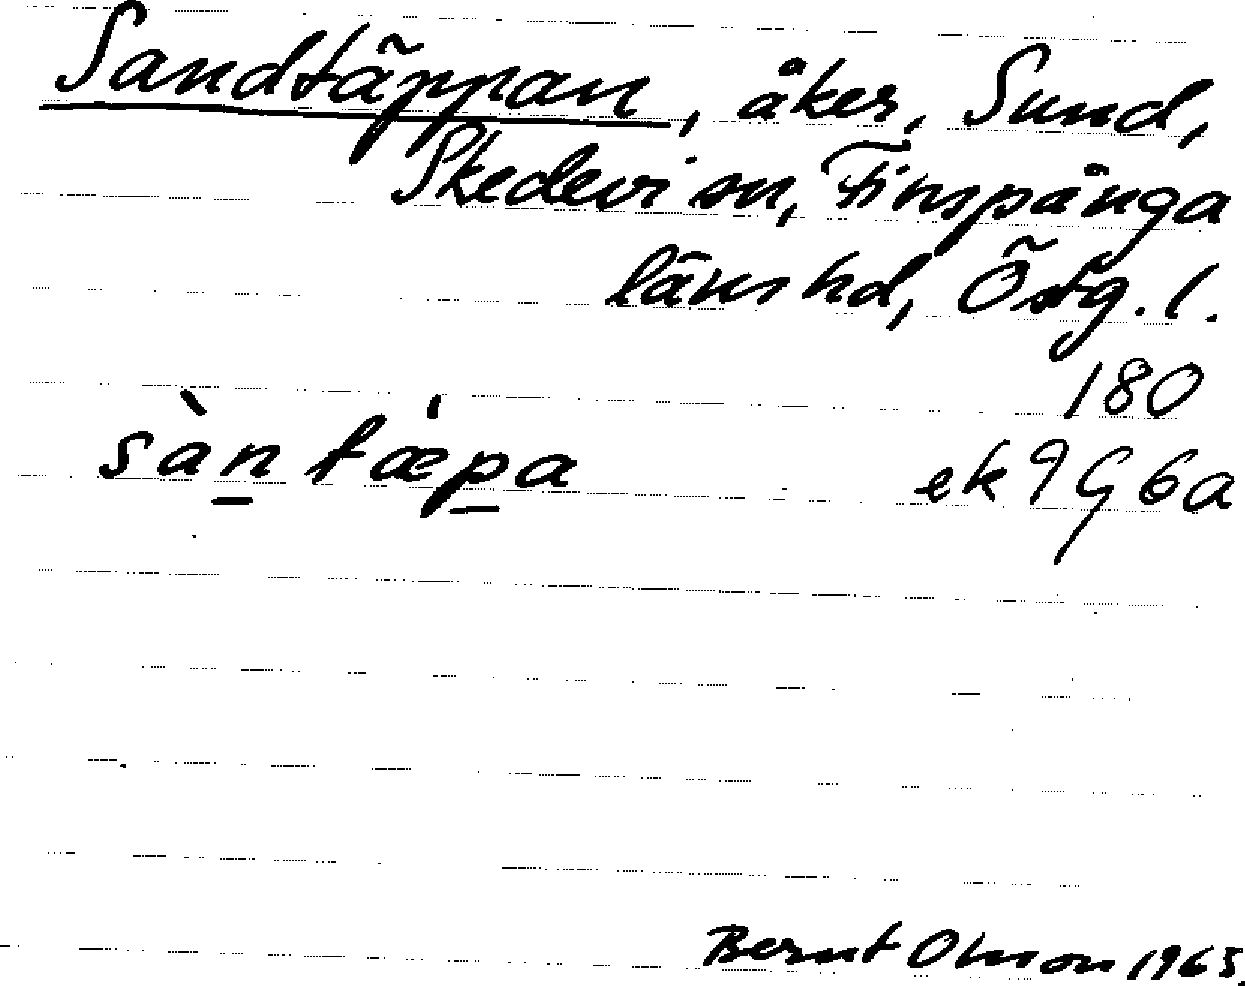 Sandtäppan, åker, Sund,
Skedevi sn, Finspånga
läns hd, Östg. l.
180
sàn tæ̍pa ek 9G6a
Bernt Olsson 1965.